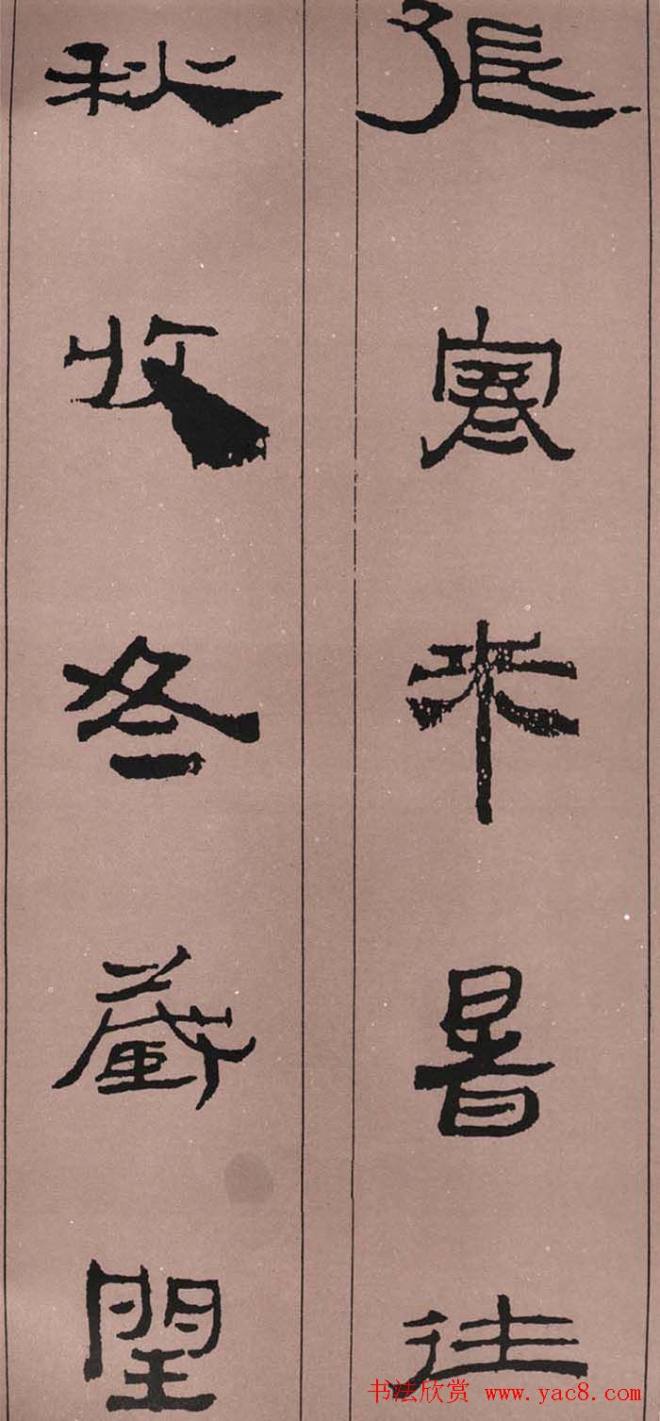 張寒來暑往
秋收冬藏閏
书法欣赏 www.yac8.com